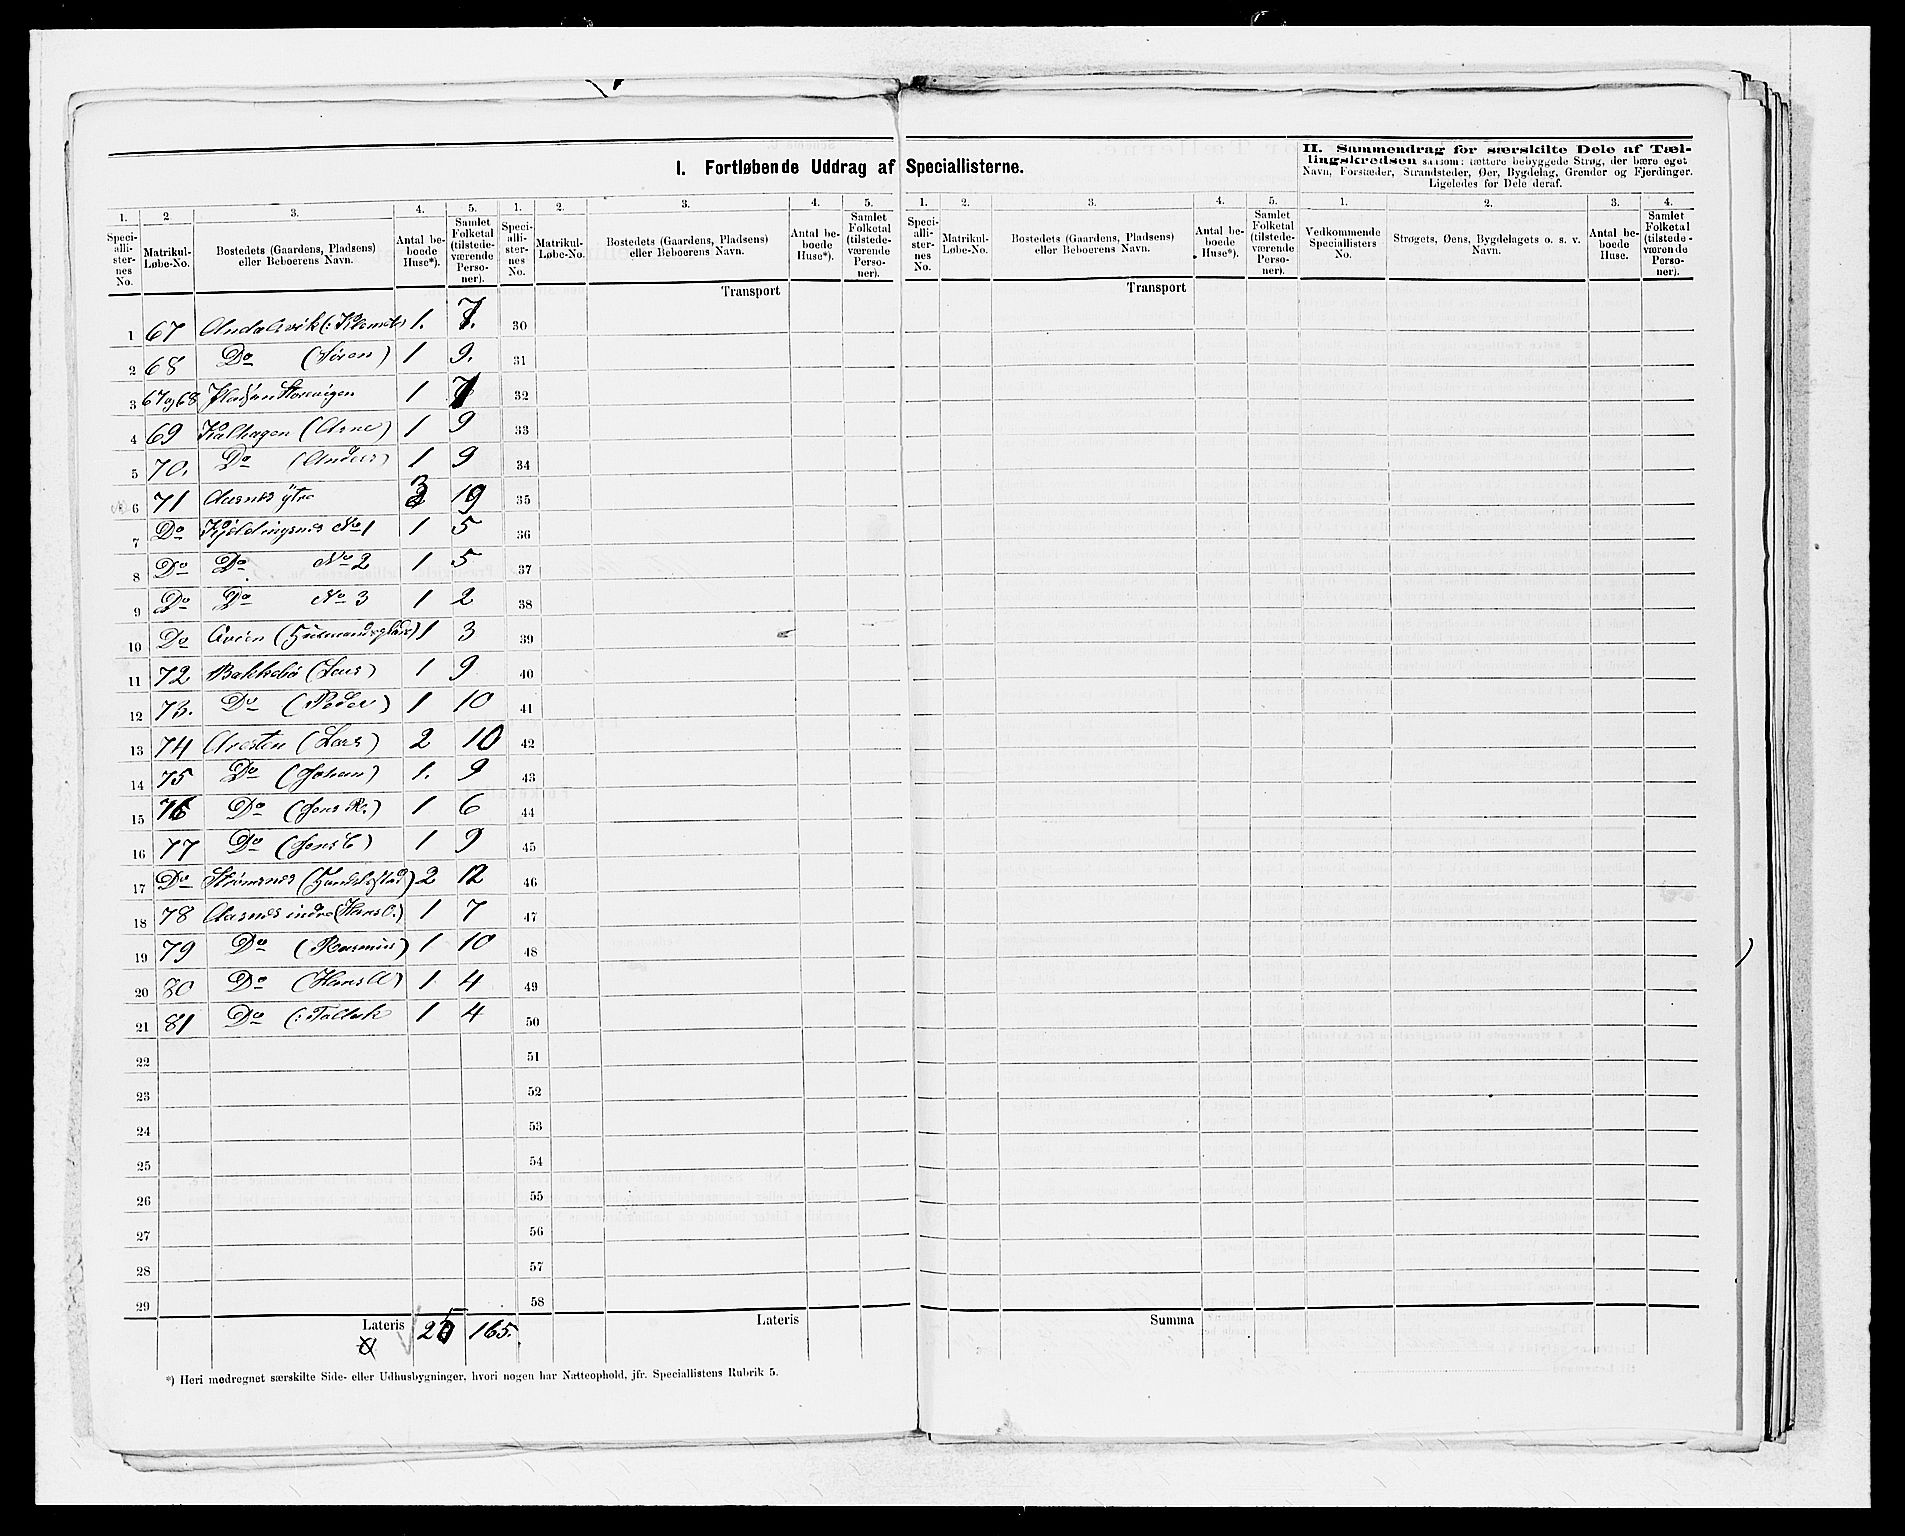 I. Fortløbende Uddrag af Speciallisterne.
II. Sammendrag for særskilte Dele af Tæl-
lingskredsen saasom: tættere bebyggede Strøg, der bære eget
Navn, Forstæder, Strandsteder, Øer, Bygdelag, Grender og Fjerdinger.
Ligeledes for Dele deraf.
1. 2. 3. 4. 5. 1. 2. 3. 4. 5. 1. 2. 3. 4. 5. 1. 2. 3. 4.
Speciallisternes No. Matrikul-Løbe-No. Bostedets (Gaardens, Pladsens) eller Beboerens Navn. Antal beboede Huse*). Samlet Folketal (tilstedeværende Personer).
Speciallisternes No. Matrikul-Løbe-No. Bostedets (Gaardens, Pladsens) eller Beboerens Navn. Antal beboede Huse*). Samlet Folketal (tilstedeværende Personer).
Speciallisternes No. Matrikul-Løbe-No. Bostedets (Gaardens, Pladsens) eller Beboerens Navn. Antal beboede Huse*). Samlet Folketal (tilstedeværende Personer).
Vedkommende Speciallisters No. Strøgets, Øens, Bygdelagets o. s. v. Navn. Antal beboede Huse. Samlet Folketal (tilstedeværende Personer).
Transport Transport
1 67 1. 7. 30
2 68 Do (Sören) 1 9. 31
3 67 og 68 1 7 32
4 69 Kalhagen (Arne) 1 9 33
5 70. Do (Anders) 1 9 34
6 71 Aasnes ytre 3 19 35
7 Do Kjeldingsnes No 1 1 5 36
8 Do Do No 2 1 5 37
9 Do Do No 3 1 2 38
10 Do (Husmandsplads) 1 3 39
11 72 Bakkebö (Lars) 1 9 40
12 73. Do (Peder) 1 10 41
13 74 (Lars) 2 10 42
14 75 Do (Johan) 1. 9 43
15 76 Do (Jens R.) 1 6 44
16 77 Do 1 9 45
17 Do Strömsnes (Handelsstad) 2 12 46
18 78 Aasnes indre (Hans O.) 1 7 47
19 79 Do (Rasmus) 1 10 48
20 80 Do (Hans A) 1 4 49
21 81 Do (: Tallak 1 4 50
22 51
23 52
24 53
25 54
26 55
27 56
28 57
29 58
Lateris 25 165. Lateris Summa
*) Heri medregnet særskilte Side- eller Udhusbygninger, hvori nogen har Natteophold, jfr. Speciallistens Rubrik 5.